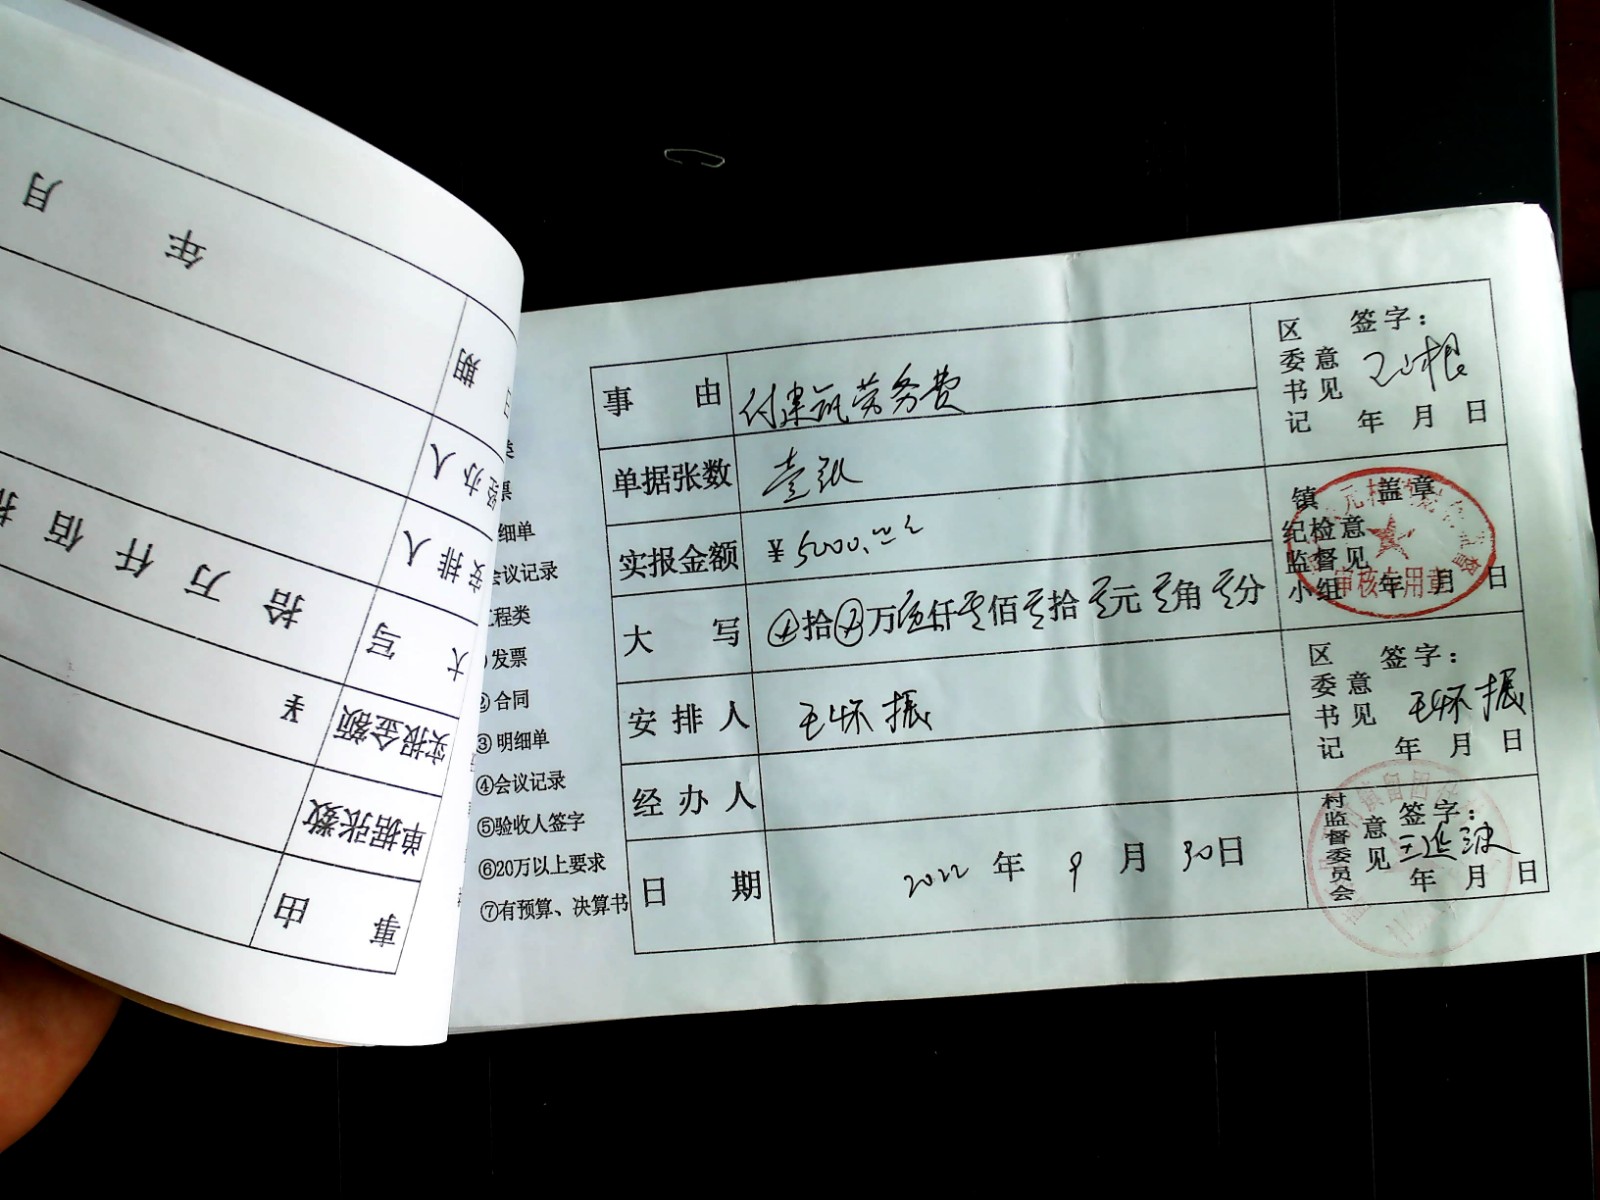 月
年
日期
经办人
安排人
拾万仟佰拾
大写
¥
实报金额
单据张数
事由
类
票
细单
会议记录
工程类
发票
②合同
③明细单
④会议记录
⑤验收人签字
⑥20万以上要求
⑦有预算、决算书
事由 付建筑劳务费
单据张数 壹张
实报金额 ¥5000.00
大写 拾万伍仟零佰零拾零元零角零分
安排人 王怀振
经办人
日期 2022年9月30日
区委书记意见 签字：
年月日
镇纪检监督小组意见 盖章
审核专用章
年月日
区委书记意见 签字：
王怀振
年月日
村监督委员会意见 签字：
王延波
年月日